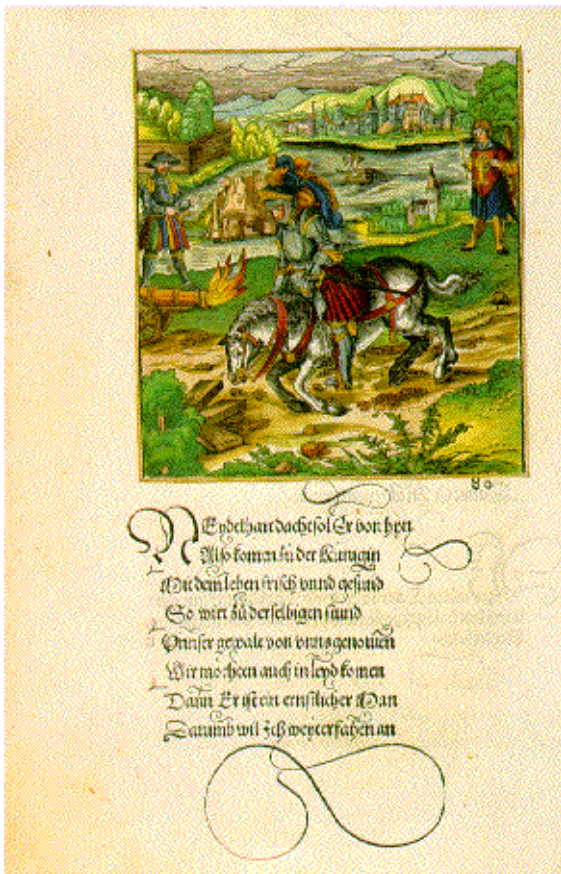 80
NEydelhart dacht sol Er von hyen
Also komen zu der Kunigin
Mit dem leben frisch vnnd gesund
So wirt zů derselbigen stund
Vnnser gewalt von vnns genomen
Wir mochten auch in leyd komen
Dann Er ist ein ernstlicher Man
Darumb wil Ich weyter fahen an